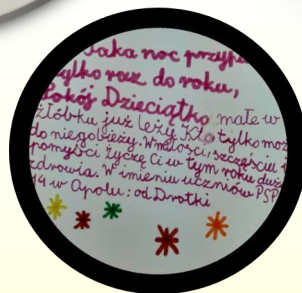 taka noc przyp
tylko raz do roku,
Pokój Dzieciątko małe w
żłóbku już leży. Kto tylko moż
do niego bieży. W miłości, szczęściu i
pomyści życzę Ci w tym roku duż
zdrowia. W imieniu uczniów PSP
w Apolu: od Drotki